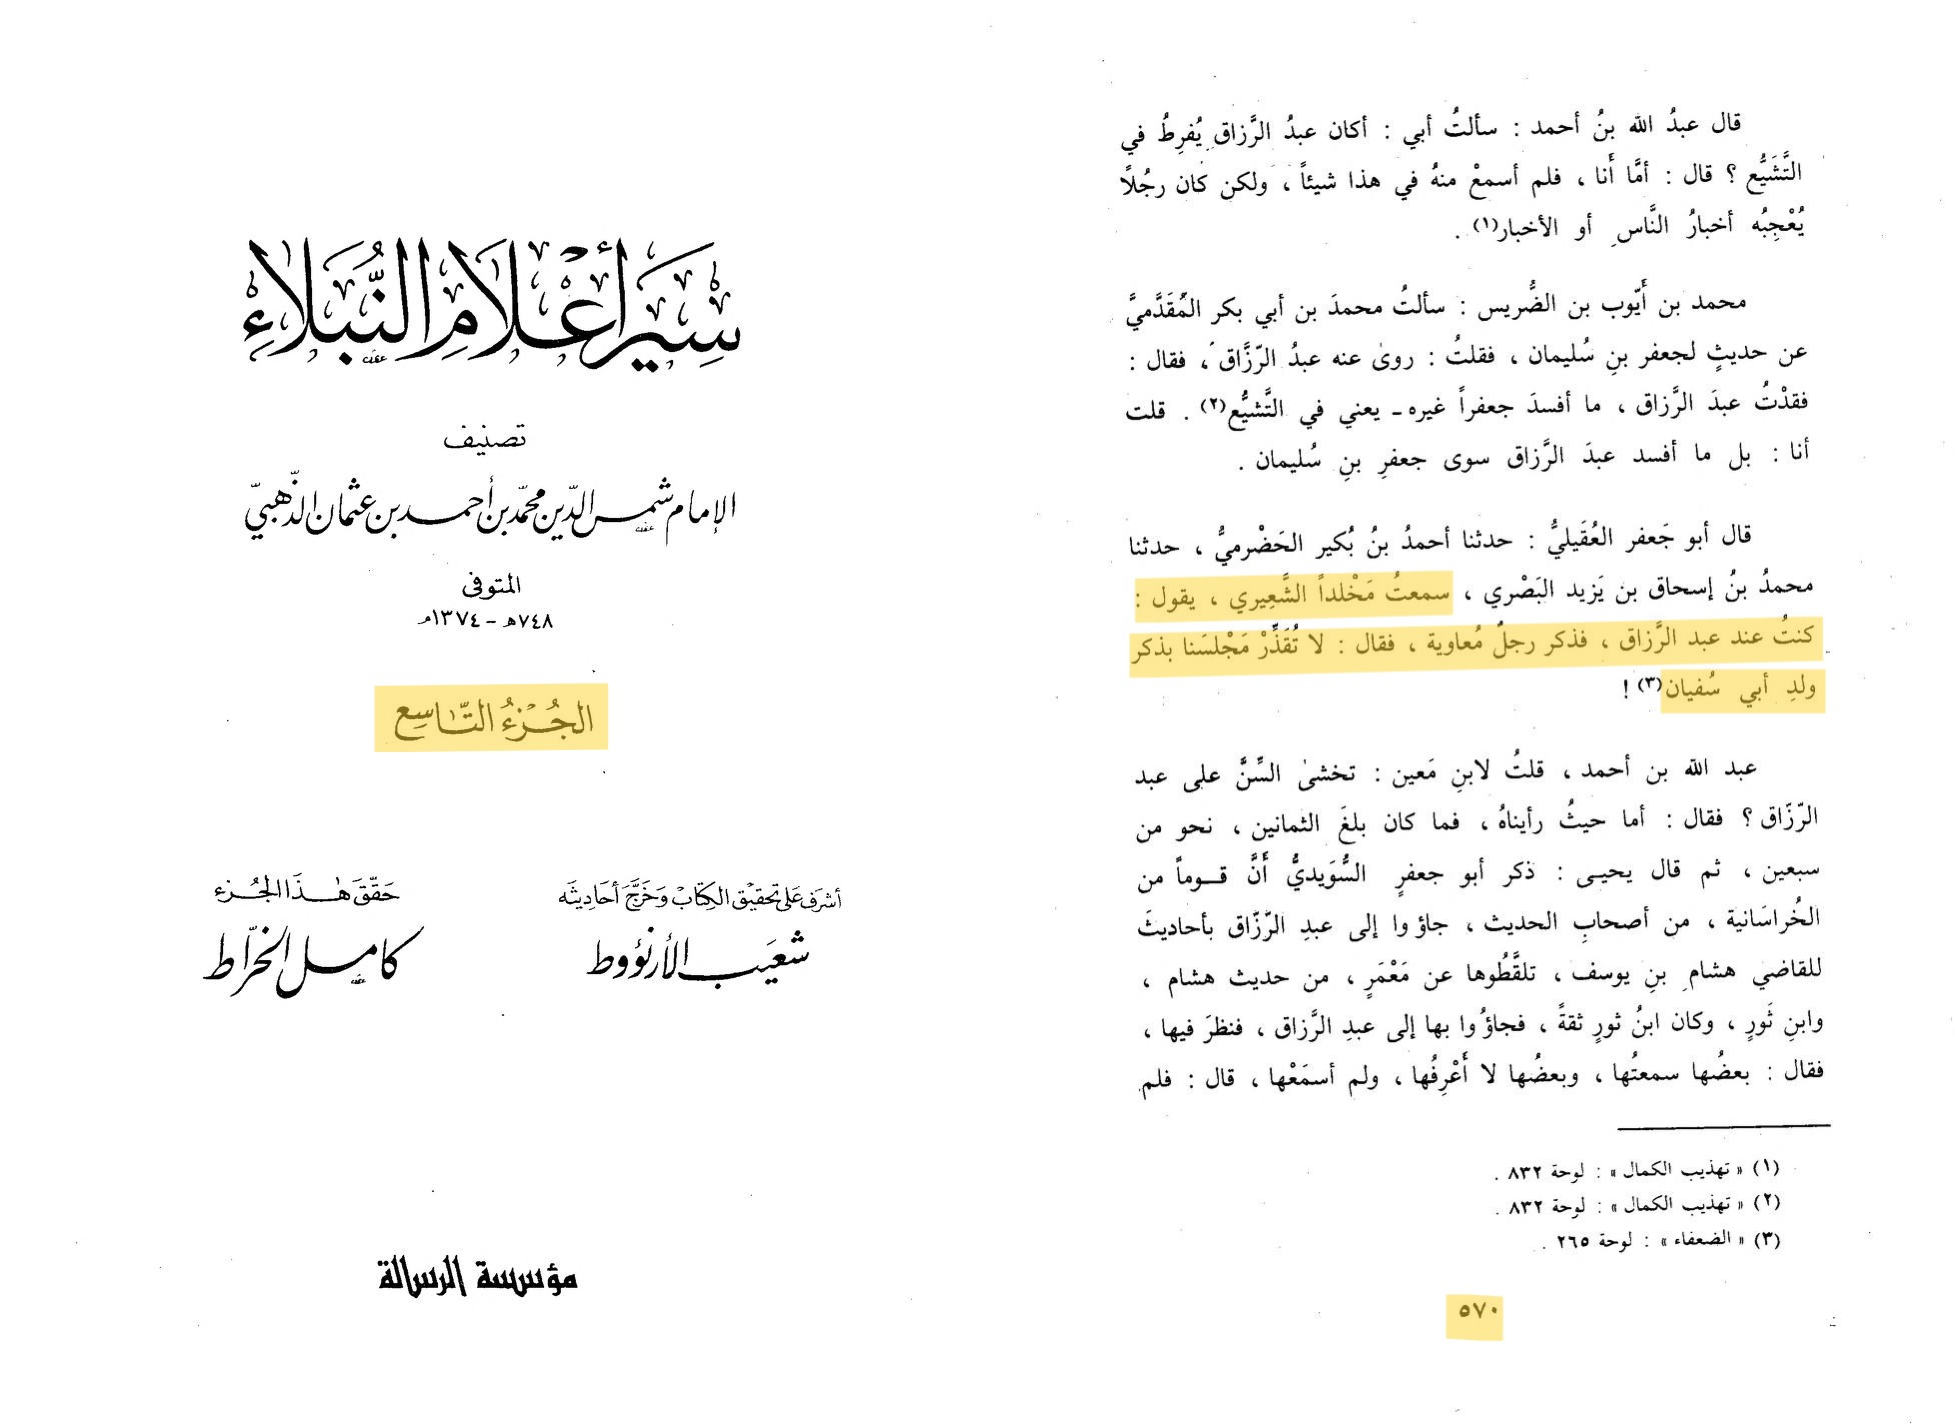 سِيَر أَعْلَامِ النُّبَلَاءِ
تصنيف
الإمام شمس الدّين محمّد بن أحمد بن عثمان الذّهبيّ
المتوفى
٧٤٨هـ - ١٣٧٤م
الجُزءُ التَّاسِع
أشرَف عَلى تحقيق الكِتابْ وَخَرَّجَ أحَادِيثَه
شعَيب الأرنؤوط
حَقّقَ هٰذَا الجُزء
كامل الخرّاط
مؤسسة الرسالة
قال عبدُ الله بنُ أحمد : سألتُ أبي : أكان عبدُ الرَّزاق يُفرِطُ في
التَّشَيُّع ؟ قال : أمَّا أَنا ، فلم أسمعْ منهُ في هذا شيئاً ، ولكن كان رجُلاً
يُعْجِبُه أخبارُ النَّاسِ أو الأخبار(١) .
محمد بن أَيّوب بن الضُّريس : سألتُ محمدَ بن أبي بكر المُقَدَّميَّ
عن حديثٍ لجعفر بنِ سُليمان ، فقلتُ : روىٰ عنه عبدُ الرّزَّاق ، فقال :
فقدْتُ عبدَ الرَّزاق ، ما أفسدَ جعفراً غيره - يعني في التَّشيُّع(٢) . قلت
أنا : بل ما أفسد عبدَ الرَّزاق سوى جعفرِ بنِ سُليمان .
قال أبو جَعفر العُقَيليُّ : حدثنا أحمدُ بنُ بُكير الحَضْرميُّ ، حدثنا
محمدُ بنُ إسحاق بن يَزيد البَصْري ، سمعتُ مَخْلداً الشَّعِيري ، يقول :
كنتُ عند عبد الرَّزاق ، فذكر رجلٌ مُعاوية ، فقال : لا تُقَذِّرْ مَجْلسَنا بذكر
ولدِ أبي سُفيان(٣) !
عبد الله بن أحمد ، قلتُ لابنِ مَعين : تخشىٰ السِّنَّ على عبد
الرّزّاق ؟ فقال : أما حيثُ رأيناهُ ، فما كان بلغَ الثمانين ، نحو من
سبعين ، ثم قال يحيى : ذكر أبو جعفرٍ السُّوَيديُّ أَنَّ قوماً من
الخُراسَانية ، من أصحابِ الحديث ، جاؤوا إلى عبدِ الرّزّاق بأحاديثَ
للقاضي هشامِ بنِ يوسف ، تلقَّطُوها عن مَعْمَرٍ ، من حديث هشام ،
وابنِ ثَورٍ ، وكان ابنُ ثورٍ ثقةً ، فجاؤُوا بها إلى عبدِ الرَّزاق ، فنظرَ فيها ،
فقال : بعضُها سمعتُها ، وبعضُها لا أَعْرِفُها ، ولم أسمَعْها ، قال : فلم
(١) « تهذيب الكمال » : لوحة ٨٣٢ .
(٢) « تهذيب الكمال » : لوحة ٨٣٢ .
(٣) « الضعفاء » : لوحة ٢٦٥ .
٥٧٠